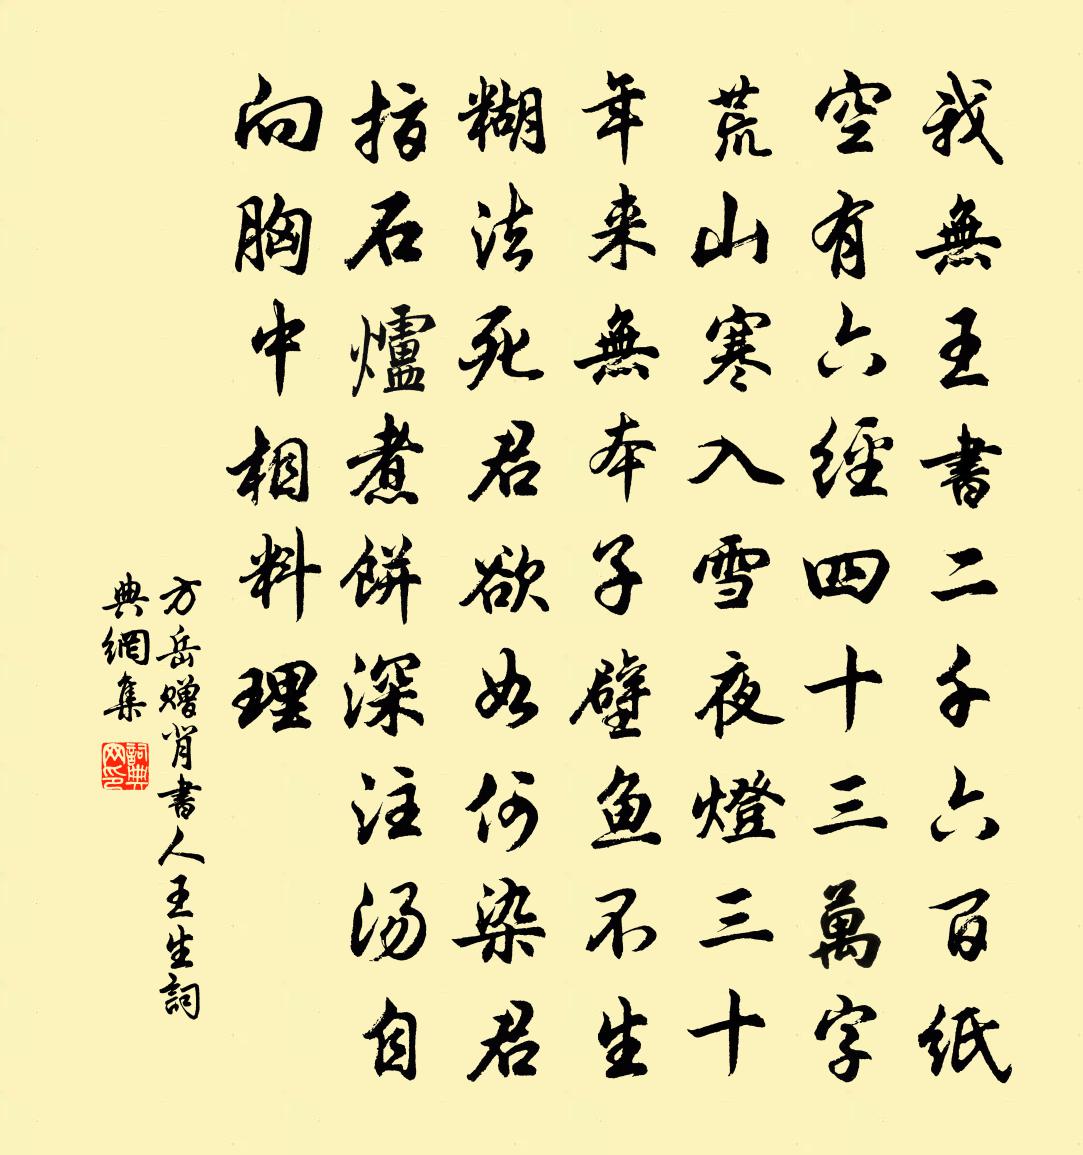 我無王書二千六百紙
空有六經四十三萬字
荒山寒入雪夜燈三十
年来無本子壁鱼不生
糊法死君欲如何染君
指石爐煮餅深注汤自
向胸中相料理
方岳赠肖書人王生詞
典網集
詞典网印